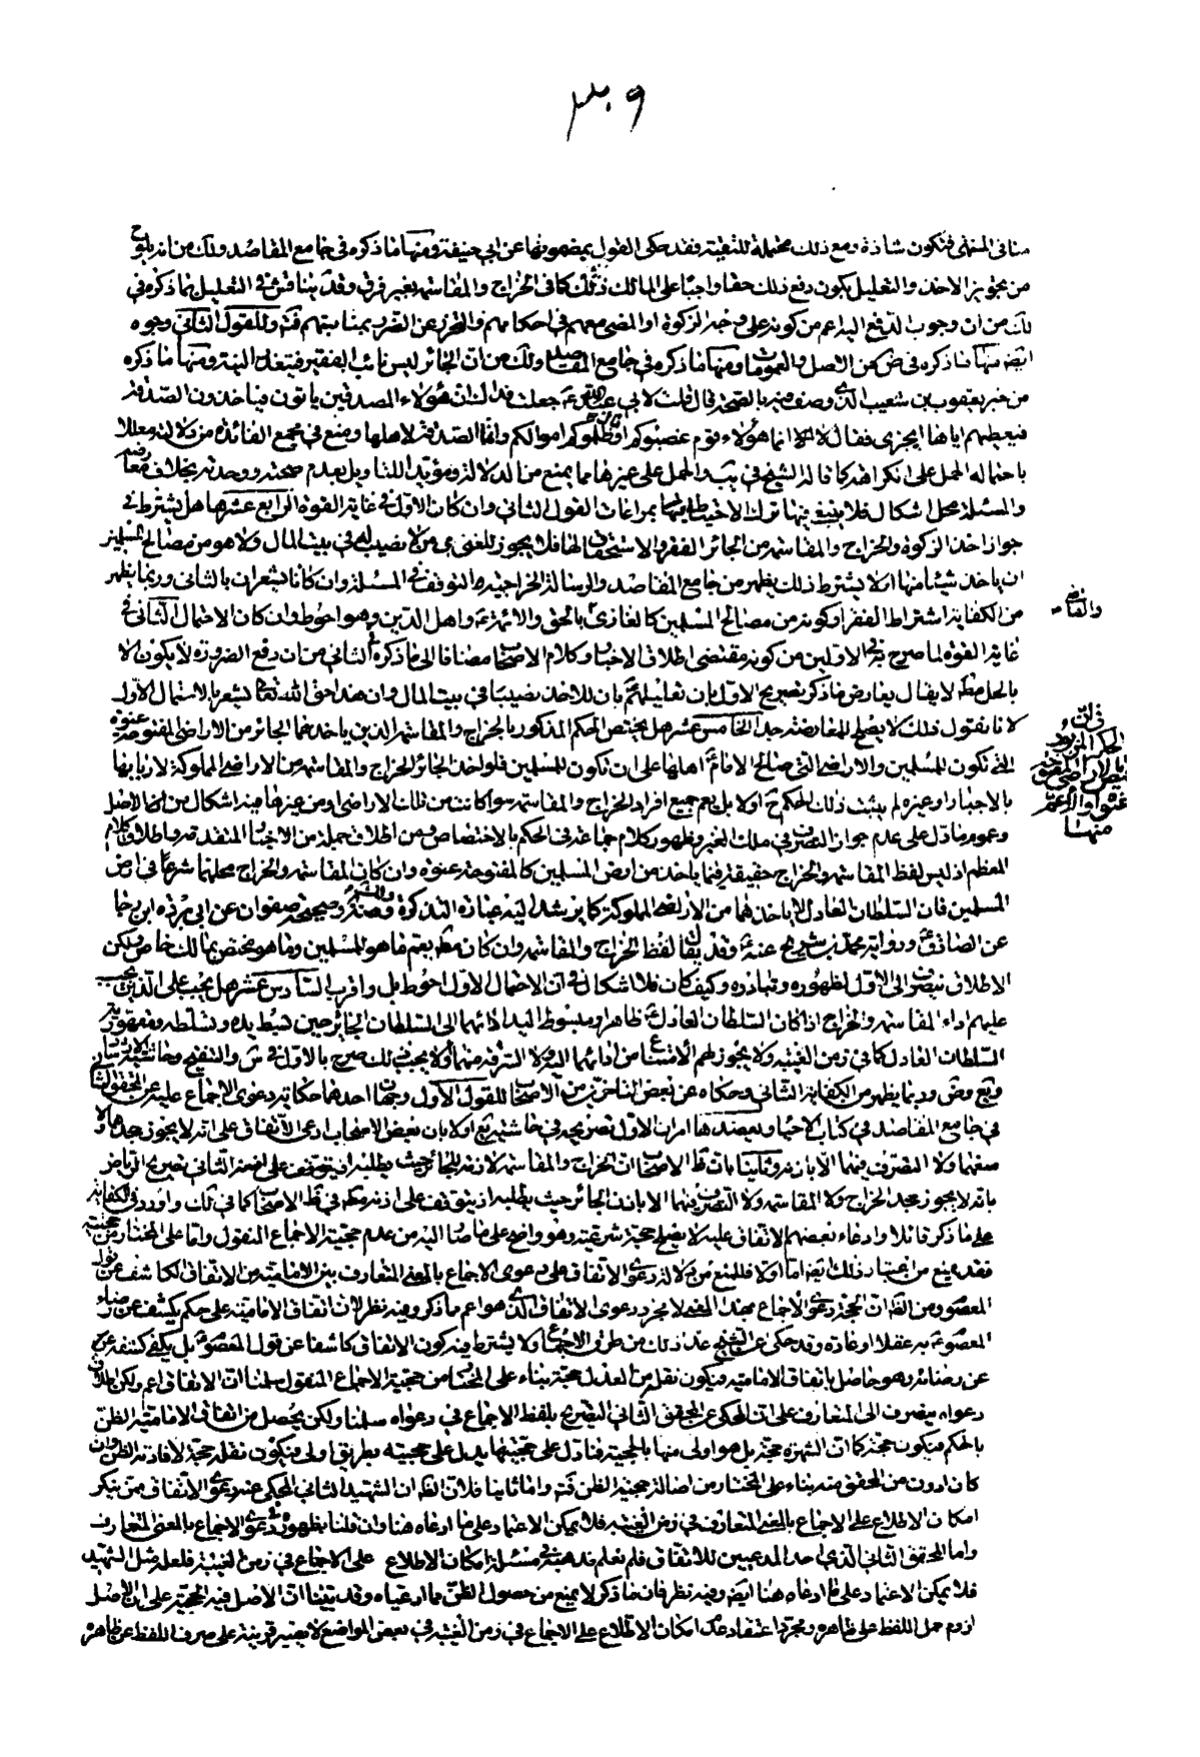 ٣٠٩
منافى المفتى فتكون شاذة ومع ذلك محتملة للتقية فقد حكى القول بمضمونها عن ابى حنيفة ومنها ما ذكره فى جامع المقاصد ولك من انه يلوح
من تجويز الاخذ والتعليل بكون دفع ذلك حقا واجبا على المالك ذلك كما فى الخراج والمقاسمة بغير فرق وقد يناقش فى التعليل بما ذكره فى
لك من ان وجوب الدفع اليه اعم من كونه على وجه الزكوة او المضى معهم فى احكامهم والتحرز عن الضرر بمباينتهم فتم وللقول الثانى وجوه
ايضا منها ما ذكره فى ض من الاصل والعمومات ومنها ما ذكره فى جامع المقاصد ولك من ان الجائر ليس نائب الفقير فيتعذر النية ومنها ما ذكره
من خبر يعقوب بن شعيب الذى وصف خبره بالصحة قال قلت لابى عبد الله ع جعلت فداك ان هؤلاء المصدقين ياتون فياخذون الصدقة
فنعطيهم اياها ايجزى فقال لا انما هؤلاء قوم غصبوكم او ظلموكم اموالكم وانما الصدقة لاهلها ومنع فى مجمع الفائدة من دلالته معللا
باحتماله الحمل على انكراهه كما قاله الشيخ فى يب والحمل على غيرها مما يمنع من الدلالة ومؤيدا للتاويل بعدم صحته ووحدته بخلاف معارضه
والمسئلة محل اشكال فلا ينبغى فيها ترك الاحتياط بمراعات القول الثانى وان كان الاول فى غاية القوة الرابع عشر هل يشترط فى
جواز اخذ الزكوة والخراج والمقاسمة من الجائر الفقر والاستحقاق لها فلا يجوز للغنى ومن لا نصيب له فى بيت المال ولا هو من مصالح المسلمين
ان ياخذ شيئا منها او لا يشترط ذلك يظهر من جامع المقاصد والرسالة الخراجية التوقف فى المسئلة وان كانا يشعران بالثانى وربما يظهر
من الكفاية اشتراط الفقر او كونه من مصالح المسلمين كالغازى بالحق والائمة واهل الدين وهو احوط وان كان الاحتمال الثانى فى
غاية القوة لما صرح به فى الاولين من كونه مقتضى اطلاق الاخبار وكلام الاصحاب مضافا الى ما ذكره الثانى من ان دفع الضرورة لا يكون الا
بالحل مطلقا لا يقال يعارض ما ذكر تصريح الاول بان تعليلهم بان للاخذ نصيبا فى بيت المال وان هذا حق الله تعالى يشعر بالاحتمال الاول
لانا نقول ذلك لا يصلح للمعارضة جدا الخامس عشر هل يختص الحكم المذكور بالخراج والمقاسمة الذين ياخذهما الجائر من الاراضى المفتوحة عنوة
التى تكون للمسلمين والاراضى التى صالح الامام اهلها على ان تكون للمسلمين فلو اخذ الجائر الخراج والمقاسمة من الاراضى المملوكة لاربابها
بالاجبار او غيره لم يثبت ذلك الحكم او لا بل يعم جميع افراد الخراج والمقاسمة سواء كانت من تلك الاراضى او من غيرها فيه اشكال من ان الاصل
وعموم ما دل على عدم جواز التصرف فى ملك الغير وظهور كلام جماعة فى الحكم بالاختصاص ومن اطلاق جملة من الاخبار المتقدمة واطلاق كلام
المعظم اذ ليس لفظ المقاسمة والخراج حقيقة فيما ياخذ من ارض المسلمين كالمفتوحة عنوة وان كان المقاسمة والخراج محلهما شرعا فى ارض
المسلمين فان السلطان العادل لا ياخذهما من الاراضى المملوكة كما يرشد اليه عبارة التذكرة وصحيحة صفوان عن ابى بردة ابن رجا
عن الصادق ع ورواية محمد بن شريح عنه ع وقد يقال لفظ الخراج والمقاسمة وان كان مطلقا يعم ما هو للمسلمين وما هو مختص بمالك خاص ولكن
الاطلاق ينصرف الى الاول لظهوره وتبادره وكيف كان فلا اشكال فى ان الاحتمال الاول احوط بل واقرب السادس عشر هل يجب على الذين يجب
عليهم اداء المقاسمة والخراج اذا كان السلطان العادل ع ظاهرا ومبسوط اليد ادائهما الى السلطان الجائر حين تبسط يده وتسلطه ومقهورية
السلطان العادل كما فى زمن الغيبة ولا يجوز لهم الامتناع من ادائهما اليه ولا السرقة منهما او لا يجب ذلك صرح بالاول فى س والتنقيح وحاشية الارشاد
ويع وض وربما يظهر من الكفاية الثانى وحكاه عن بعض المتاخرين من الاصحاب للقول الاول وجهان احدهما حكاية دعوى الاجماع عليه عن المحقق الثانى
فى جامع المقاصد فى كتاب الاحياء ويعضدها امران الاول تصريحه فى حاشية يع اولا بان بعض الاصحاب ادعى الاتفاق على انه لا يجوز جحدهما ولا
منعهما ولا التصرف فيهما الا باذنه وثانيا بان ظ الاصحاب ان الخراج والمقاسمة لازمة للجائر حيث يطلبه او يتوقف على اذنه الثانى تصريح الرياض
بانه لا يجوز جحد الخراج ولا المقاسمة ولا التصرف فيهما الا باذن الجائر حيث يطلبه او يتوقف على اذنه مطلقا فى ظ الاصحاب كما فى لك واورد فى الكفاية
على ما ذكر قائلا وادعاء بعضهم الاتفاق عليه لا يصلح حجة شرعية وهو واضح على ما صار اليه من عدم حجية الاجماع المنقول واما على المختار من حجيته
فقد يمنع من اعتبار ذلك ايضا اما اولا فللمنع من دلالة دعوى الاتفاق على دعوى الاجماع بالمعنى المتعارف بين الامامية من الاتفاق الكاشف عن قول
المعصوم ومن الظ ان الحجة دعوى الاجماع بهذا المعنى لا مجرد دعوى الاتفاق الذى هو اعم ما ذكر وفيه نظر لان اتفاق الامامية على حكم يكشف عن رضاء
المعصوم ع به عقلا او عادة وقد حكى عن الشيخ عد ذلك من طرق الاجماع ولا يشترط فيه كون الاتفاق كاشفا عن قول المعصوم بل يكفى كشفه عن
عن رضائه وهو حاصل باتفاق الامامية فيكون نقل من العدل حجة بناء على المختار من حجية الاجماع المنقول سلمنا ان الاتفاق اعم ولكن اطلاق
دعواه ينصرف الى المتعارف على ان المحكى عن المحقق الثانى التصريح بلفظ الاجماع فى دعواه سلمنا ولكن يحصل من اتفاق الامامية الظن
بالحكم فيكون حجة كما ان الشهرة حجة بل هو اولى منها بالحجية فما دل على حجيتها يدل على حجيته بطريق اولى فيكون نقله حجة لافادته الظن وان
كان ادون من المحقق منه بناء على المختار من اصالة حجية الظن فتم واما ثانيا فلان الظ ان الشهيد الثانى المحكى عنه دعوى الاتفاق ممن ينكر
امكان الاطلاع على الاجماع بالمعنى المتعارف فى زمن الغيبة فلا يمكن الاعتماد على ما ادعاه هنا وان قلنا بظهوره فى دعوى الاجماع بالمعنى المتعارف
واما المحقق الثانى الذى احد المدعيين للاتفاق فلم نعلم مذهبه فى مسئلة امكان الاطلاع على الاجماع فى زمن الغيبة فلعله مثل الشهيد
فلا يمكن الاعتماد على ما ادعاه هنا ايضا وفيه نظر فان ما ذكر لا يمنع من حصول الظن مما ادعياه وقد بينا ان الاصل فيه الحجية على ان الاصل
لزوم حمل اللفظ على ظاهره ومجرد اعتقاد عدم امكان الاطلاع على الاجماع فى زمن الغيبة فى بعض المواضع لا يصير قرينة على صرف اللفظ عن ظاهره
والقاضى
ذلك
الحكم المزبور
بالاراضى المفتوحة
عنوة او الاعم
منها